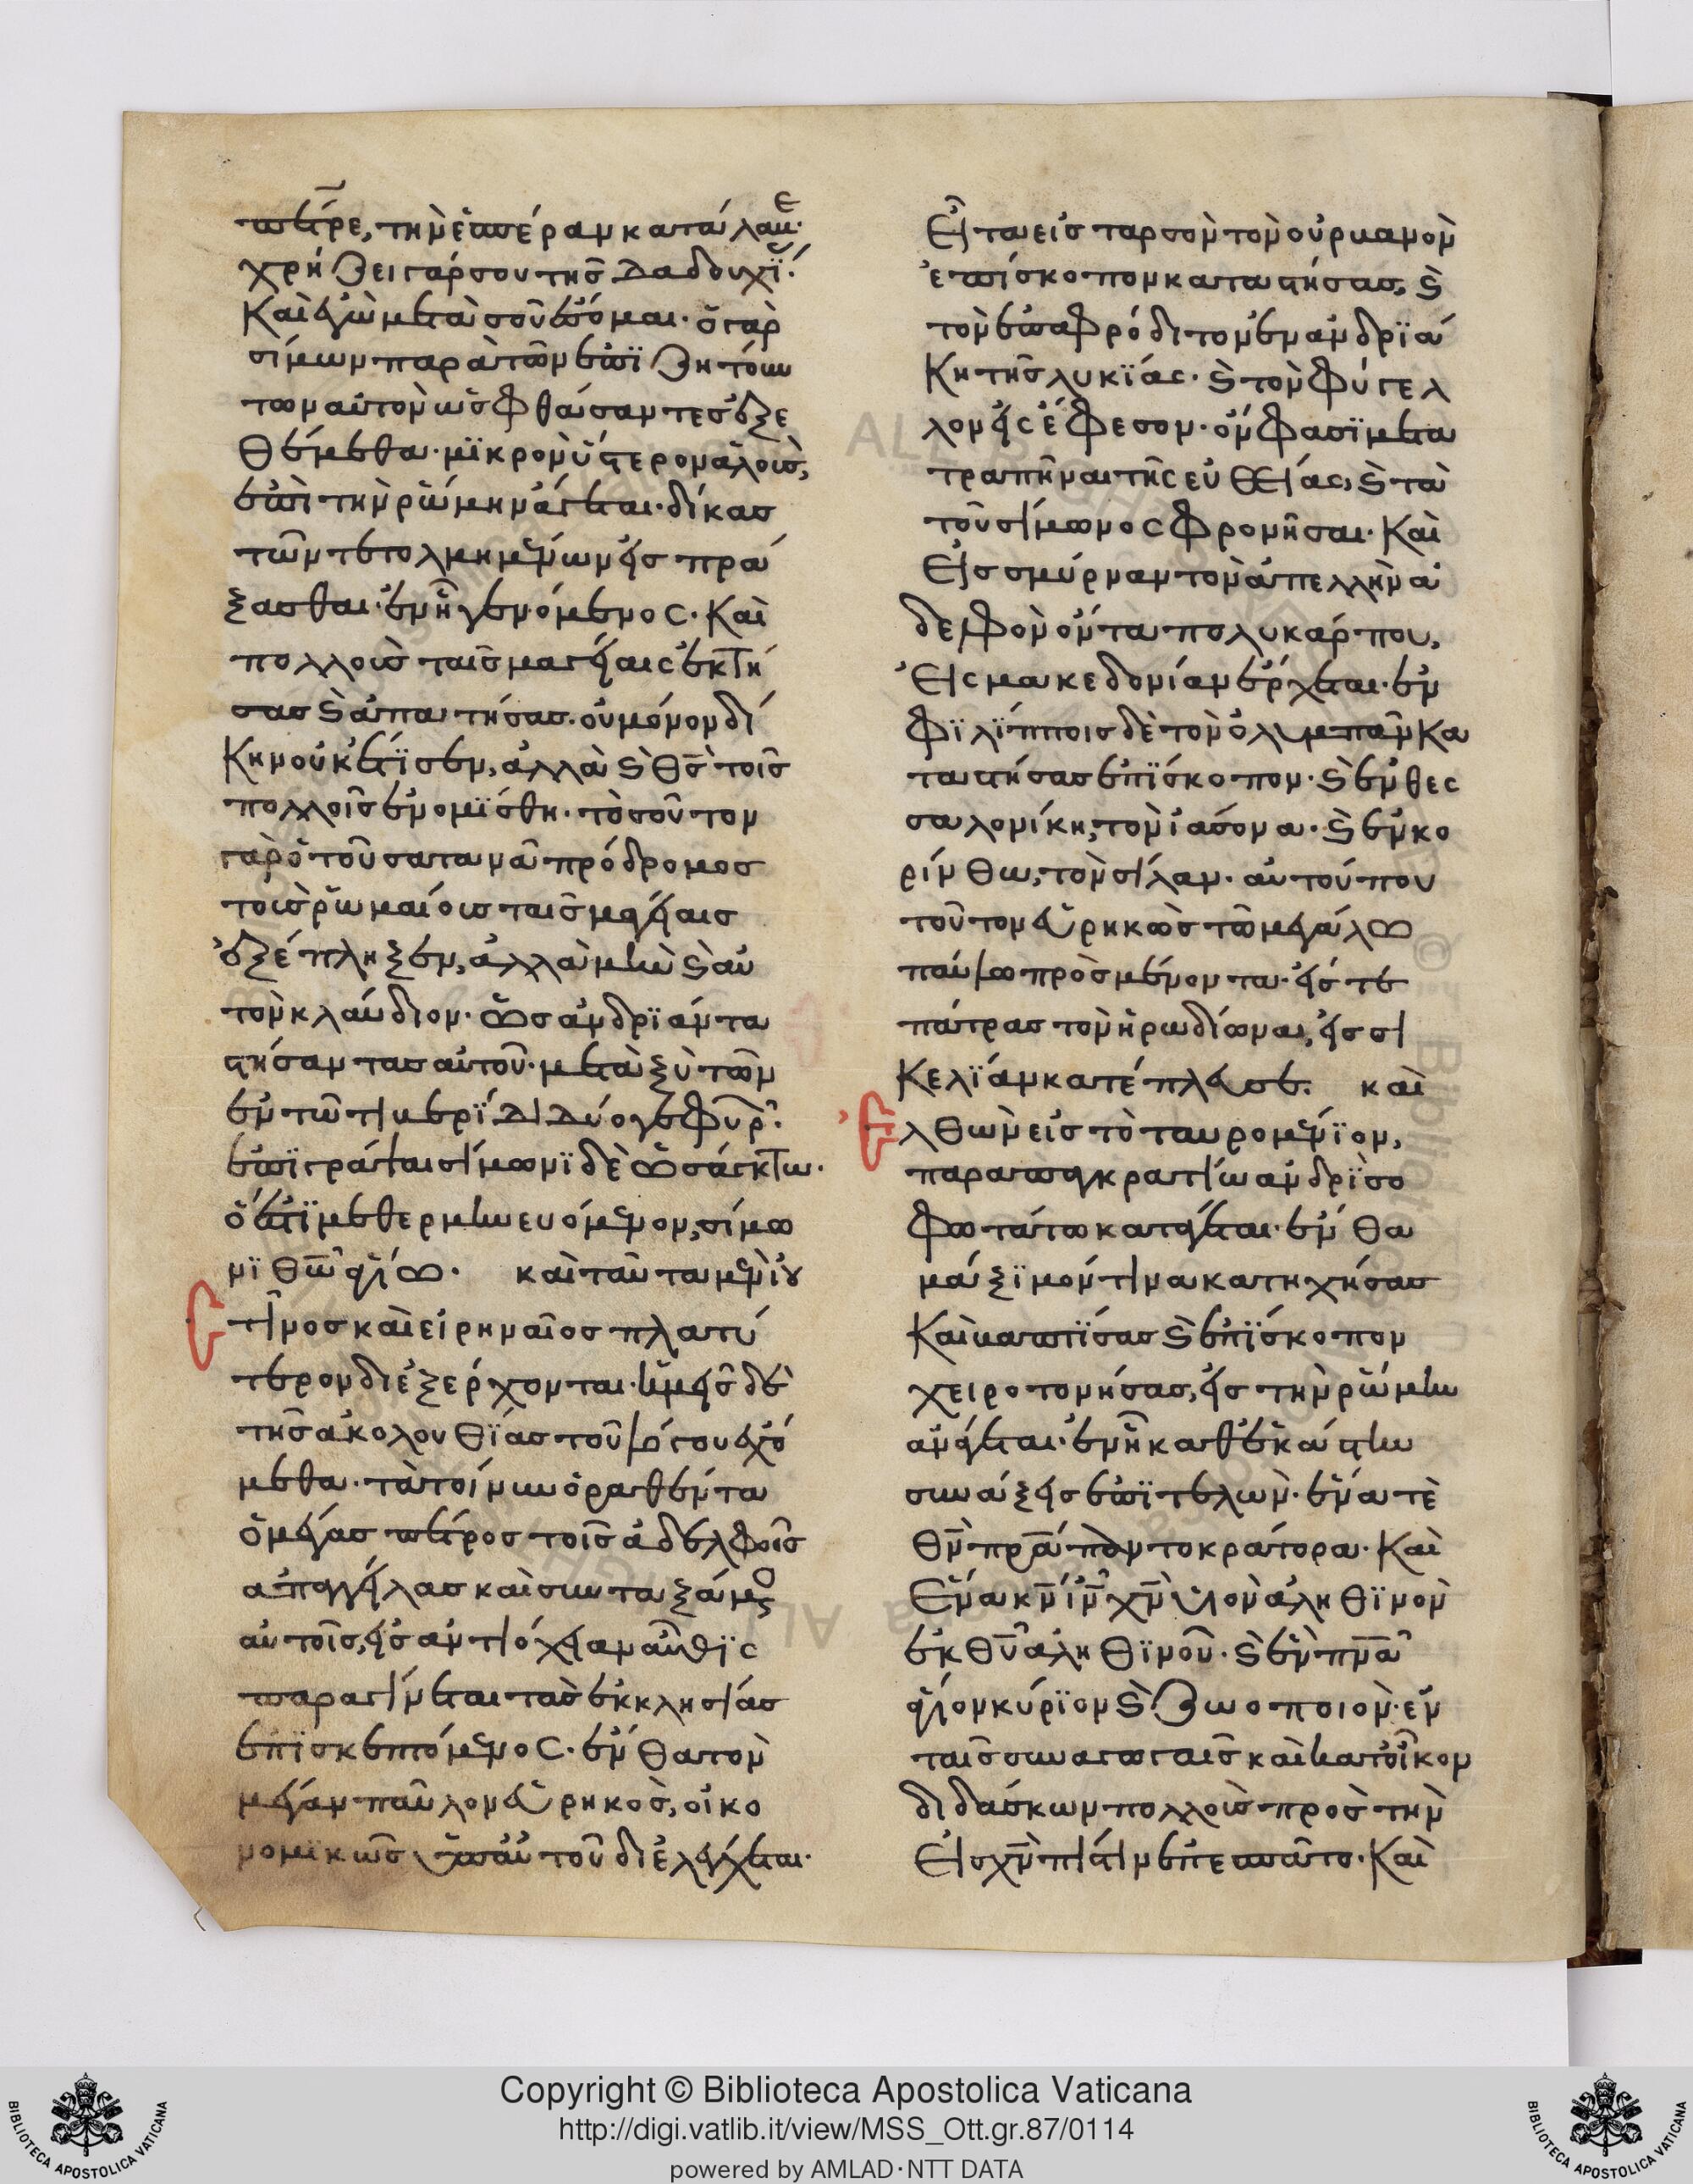 πάτερ, τὴν ἑσπέραν καταλάμ
χρήζει γάρ σου τῆς δαδουχί
καὶ ἐγὼ μετὰ σοῦ ἕψομαι· ὁ γὰρ
σίμων παρὰ τῶν ἐπιζητούν
των αὐτὸν ὡς φθάσαντες ἐξε
θέμεθα· μικρὸν ὕστερον ἁλοὺς,
ἐπὶ τὴν ῥώμην ἄγεται· δίκας
τῶν τετολμημένων εἰσπρά
ξασθαι· ἐν ᾗ γενόμενος· καὶ
πολλοὺς ταῖς μαγείαις ἐκστή
σας καὶ ἀπατήσας· οὐ μόνον δί
κην οὐκ ἔτισεν, ἀλλὰ καὶ θς τοῖς
πολλοῖς ἐνομίσθη· τοσοῦτον
γὰρ ὁ τοῦ σατανᾶ πρόδρομος
τοὺς ῥωμαίους ταῖς μαγείαις
ἐξέπληξεν, ἀλλὰ μὴν καὶ αὐ
τὸν κλαύδιον· ὡς ἀνδριάντα
στήσαντας αὐτοῦ· μεταξὺ τῶν
ἐν τῶ τίβερι δύο γεφυρ
ἐπιγράψαι σίμωνι δὲ ὡς ἁγίω·
ὃ ἔστι μεθερμηνευόμενον, σίμω
νι θῶ ἁγίω· καὶ ταῦτα μὲν ἰου
στῖνος καὶ εἰρηναῖος πλατύ
τερον διεξέρχονται· ἡμεῖς δὲ
τῆς ἀκολουθίας τοῦ λόγου ἐχό
μεθα· τὰ τοίνυν ὁραθέντα
ὁ μέγας πέτρος τοῖς ἀδελφοῖς
ἀπαγγείλας καὶ συνταξάμενος
αὐτοῖς, εἰς ἀντιόχειαν αὖθις
παραγίνεται τὰς ἐκκλησίας
ἐπισκεπτόμενος· ἔνθα τὸν
μέγαν παῦλον εὑρηκὼς, οἰκο
νομικῶς ὑπ' αὐτοῦ διελέγχεται·
Εἶτα εἰς ταρσὸν τὸν οὐρβανὸν
ἐπίσκοπον καταστήσας, καὶ
τὸν ἐπαφρόδιτον ἐν ἀνδριά
κη τῆς λυκίας· καὶ τὸν φύγελ
λον εἰς ἔφεσον· ὅν φασι μετα
τραπῆναι τῆς εὐθείας, καὶ τὰ
τοῦ σίμωνος φρονῆσαι· Καὶ
Εἰς σμύρναν τὸν ἀπελλῆν ἀ
δελφὸν ὄντα πολυκάρπου,
Εἰς μακεδονίαν ἔρχεται· ἐν
φιλίπποις δὲ τὸν ὀλυμπᾶν κα
ταστήσας ἐπίσκοπον· καὶ ἐν θεσ
σαλονίκη, τὸν ἰάσονα· καὶ ἐν κο
ρίνθω, τὸν σίλαν· αὐτοῦ που
τοῦτον εὑρηκὼς τῶ μεγάλω
παύλω προσμένοντα· εἴς τε
πάτρας τὸν ἡρωδίωνα, εἰς σι
κελίαν κατέπλευσε· καὶ
ἐλθὼν εἰς τὸ ταυρομένιον,
παρὰ παγκρατίω ἀνδρὶ σο
φωτάτω κατάγεται· ἔνθα
μάξιμόν τινα κατηχήσας
Καὶ βαπτίσας καὶ ἐπίσκοπον
χειροτονήσας, εἰς τὴν ῥώμην
ἀνάγεται· ἐν ᾗ καθ' ἑκάστην
συνάξεις ἐπιτελῶν· ἕνα τε
θν πρα παντοκράτορα· Καὶ
Ἕνα κν ἰν χν υἱὸν ἀληθινὸν
ἐκ θυ ἀληθινοῦ· καὶ ἓν πνα
ἅγιον κύριον καὶ ζωοποιὸν· ἐν
ταῖς συναγωγαῖς καὶ κατ' οἶκον
διδάσκων πολλοὺς πρὸς τὴν
Εἰς χν πίστιν ἐπεσπᾶτο· Καὶ
Copyright © Biblioteca Apostolica Vaticana
http://digi.vatlib.it/view/MSS_Ott.gr.87/0114
powered by AMLAD·NTT DATA
BIBLIOTECA APOSTOLICA VATICANA
BIBLIOTECA APOSTOLICA VATICANA